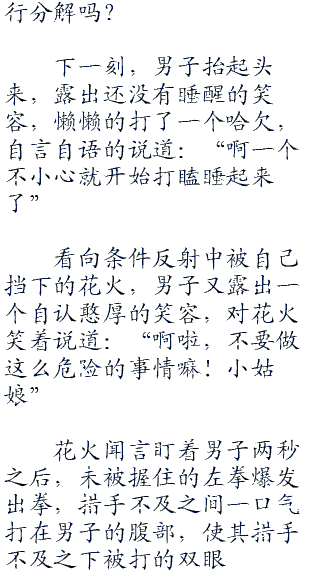 行分解吗？
下一刻，男子抬起头
来，露出还没有睡醒的笑
容，懒懒的打了一个哈欠，
自言自语的说道：“啊一个
不小心就开始打瞌睡起来
了”
看向条件反射中被自己
挡下的花火，男子又露出一
个自认憨厚的笑容，对花火
笑着说道：“啊啦，不要做
这么危险的事情嘛！小姑
娘”
花火闻言盯着男子两秒
之后，未被握住的左拳爆发
出拳，措手不及之间一口气
打在男子的腹部，使其措手
不及之下被打的双眼